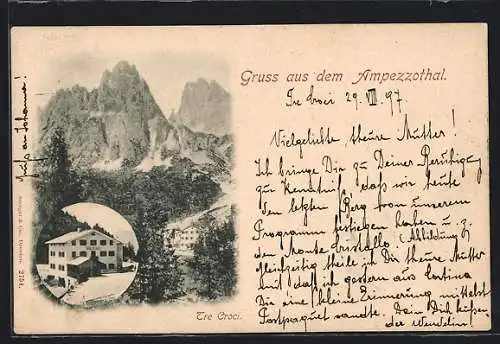 Gruss aus dem Ampezzothal.
Tre Croci 29. VIII 97.
Vielgeliebte, theure Mutter!
Ich bringe Dir zu Deiner Beruhigung
zur Kenntniß, daß wir heute
den letzten Berg von unserem
Programm bestiegen haben u. z.
den Monte Cristallo. (Abbildung)
Gleichzeitig theile ich Dir theure Mutter
mit daß ich gestern aus Cortina
Dir eine kleine Erinnerung mittelst
Postpaquet sandte. Dein Dich küßen-
der Wendelin.
Tre Croci.
Stengel & Co., Dresden. 2754.